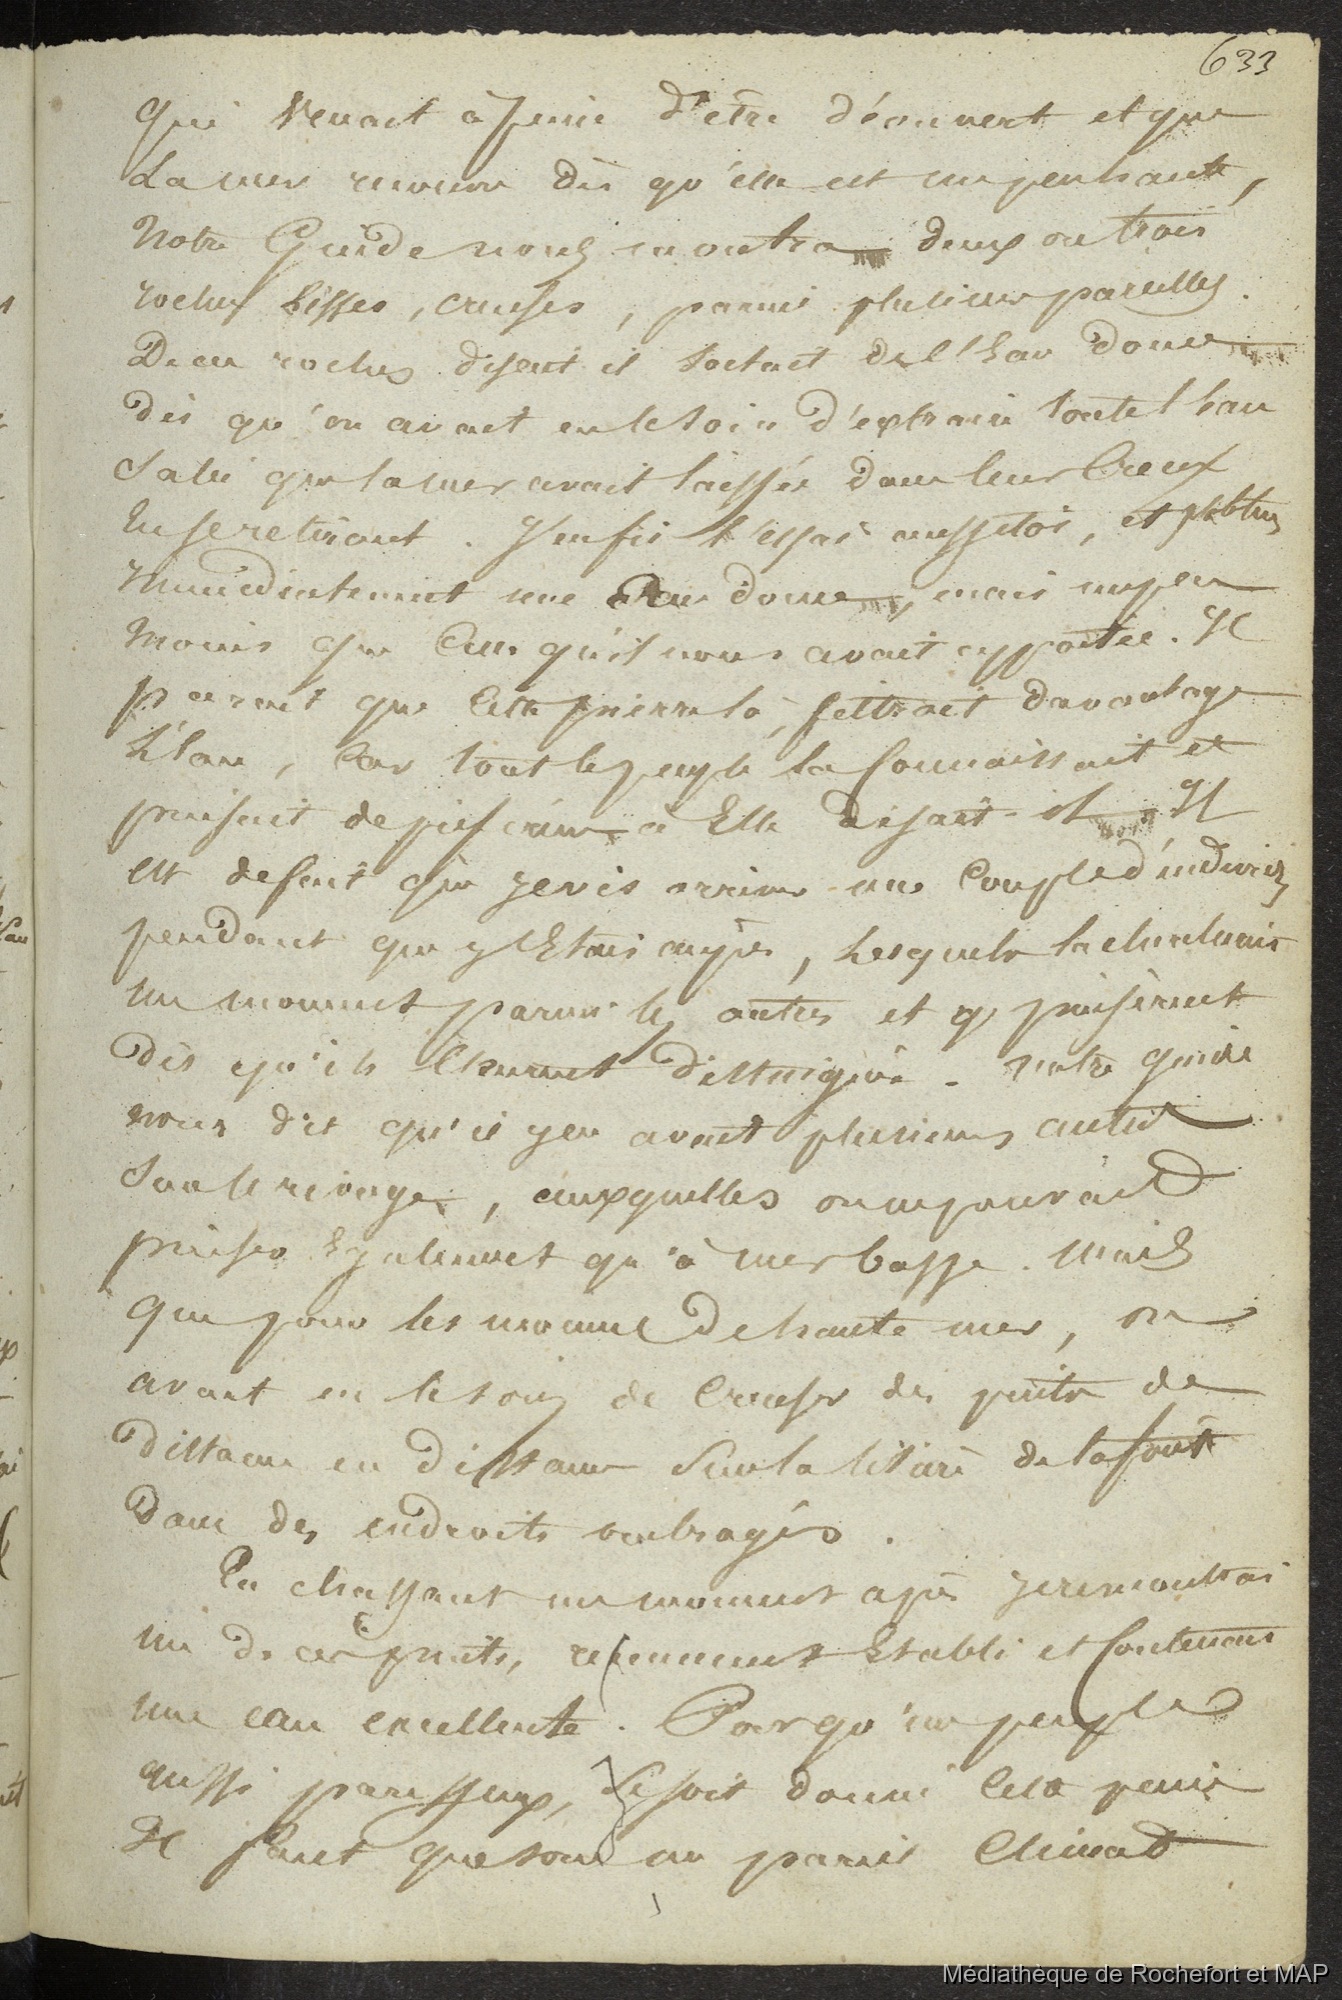 633
qui Venait à peine d'être découvert et que
La mer recouvre dès qu'elle est un peu haute,
Notre Guide nous montra deux ou trois
roches lisses, creuses, parmi plusieurs pareilles.
De ces roches disait il sortait de l'Eau douce
dès qu'on avait eu le soin d'extraire toute l'Eau
Salée que la mer avait laissée dans leur Creux
En se retirant. J'en fis l'essai aussitôt, et j'obtins
immédiatement une Eau douce, mais un peu
Moins que Celle qu'il nous avait apportée. Il
parait que Cette pierre là, filtrait davantage
L'Eau, Car tout le peuple la Connaissait et
puisait de préférence à Elle disait-il. Il
est de fait que je vis arriver une Couple d'individus
pendant que j'y Etais auprès, Lesquels la cherchaient
un moment parmi les autres et y puisèrent
dès qu'ils l'eurent distinguée. Notre guide
nous dit qu'il y en avait plusieurs autres
Sur le rivage, auxquelles on ne pouvait
puiser Egalement qu'à mer basse. Mais
que pour les momens de haute mer, on
avait eu le soin de Creuser des puits de
distance en distance Sur la lisière de la forêt
dans des endroits ombragés.
En chassant un moment après je rencontrai
un de ces puits, récemment Etabli et Contenant
une eau excellente. Pour qu'un peuple
aussi paresseux, Se soit donné Cette peine
Il faut que sous un pareil Climat
Médiathèque de Rochefort et MAP